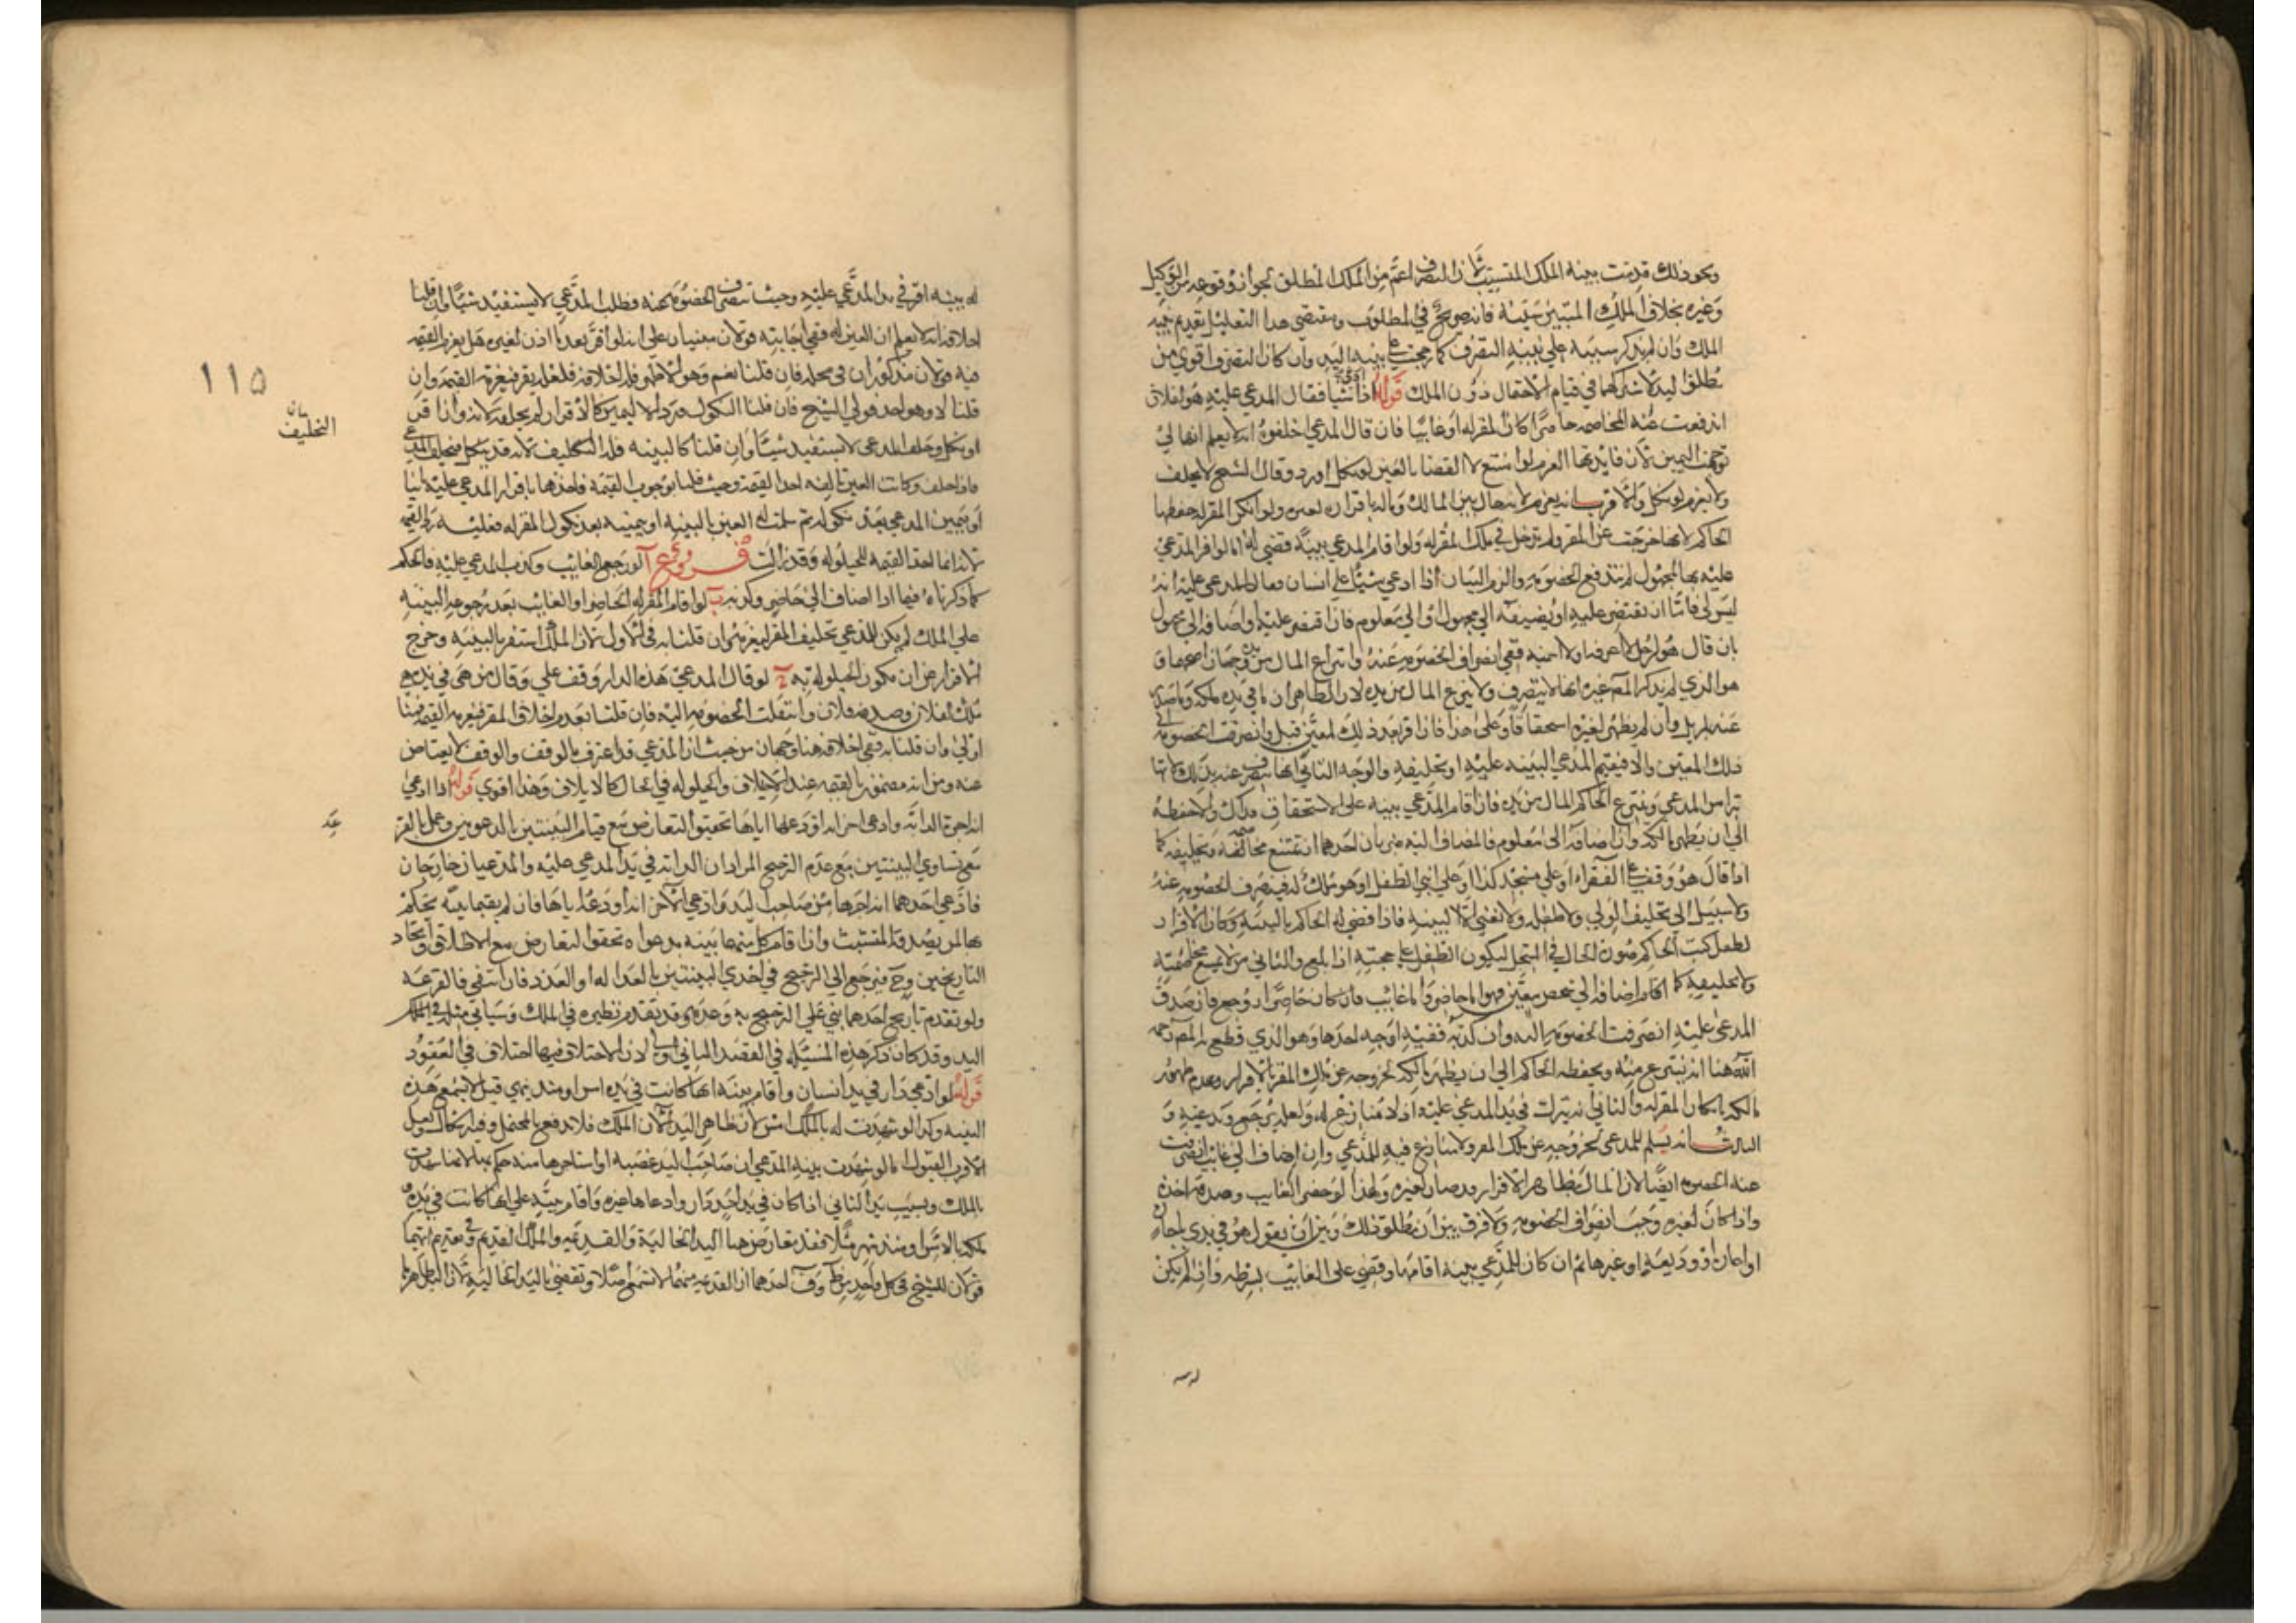 ونحو ذلك قدمت بينة الملك المتسبب لان التصرف اعم من الملك المطلق لجواز وقوعه من الوكيل
وغيره بخلاف الملك المبين سببه فانه صريح في المطلوب ومقتضى هذا التعليل تقديم بينه
الملك وان لم يذكر سببه علي بينه التصرف كما رجحت علي بينه اليد وان كان التصرف اقوي من
مطلق اليد لاشتراكهما في قيام الاحتمال دون الملك قوله اذا ادعى شيا فقال المدعي عليه هو لفلان
اندفعت عنه المخاصمه حاضرا كان المقر له او غايبا فان قال المدعي احلفوه انه لا يعلم انها لي
توجهت اليمين لان فايدتها الغرم لو امتنع لا القضا بالعين لو نكل او رد وقال الشيخ لا يحلف
ولا يغرم لو نكل والاقرب انه يغرم لانه حال بين المالك وماله باقراره لغيره ولو انكر المقر له حفظها
الحاكم لانها خرجت عن المقر ولم تدخل في ملك المقر له ولو اقام المدعي بينة قضي له اما لو اقر المدعي
عليه بها لمجهول لم تندفع الخصومه والزم البيان اذا ادعي شيئا علي انسان فقال المدعي عليه انه
ليس لي فاما ان يقتصر عليه او يضيفه الي مجهول او الي معلوم فان اقتصر عليه او اضافه الي مجهول
بان قال هو لرجل لا اعرفه او لا اسميه ففي انصراف الخصومه عنه وانتزاع المال من يده وجهان اصحهما و
هو الذي لم يذكر المصـ غيره انها لا ينصرف ولا ينزع المال من يده لان الظاهر ان ما في يده ملكه وما صدر
عنه لم يزل وان لم يظهر لغيره استحقاقا وعلى هذا فان اقر بعد ذلك لمعين قبل وانصرفت الخصومه الي
ذلك المعين والا فيقيم المدعي البينه عليه او تحليفه والوجه الثاني انها تنصرف عنه بذلك
المدعي وينتزع الحاكم المال من يده فان اقام المدعي بينه على الاستحقاق فذاك والا حفظه
الي ان يظهر مالكه وان اضافه الى معلوم فالمضاف اليه ضربان احدهما ان تمتنع مخاصمته وتحليفه كما
اذا قال هو وقف علي الفقراء او علي مسجد كذا او علي ابني الطفل او هو ملك له فينصرف الخصومه عنه
ولا سبيل الى تحليف الولي ولا طفله ولا تغني الا البينه فاذا قضي له الحاكم بالبينه وكان الاقرار
لطفل كتب الحاكم صورة الحال في السجل ليكون الطفل علي حجته اذا بلغ والثاني من لا تمتنع مخاصمته
ولا تحليفه كما اذا اضافه الي شخص معين فهو اما حاضر واما غائب فان كان حاضرا روجع فان صدق
المدعي عليه انصرفت الخصومه اليه وان كذبه ففيه اوجه احدها وهو الذي قطع به المصـ رحمه
الله هنا انه ينتزع منه ويحفظه الحاكم الي ان يظهر مالكه لخروجه عن ملك المقر بالاقرار وعدم ظهور
مالكه بانكار المقر له والثاني انه يترك في يد المدعي عليه اذ لا منازع له ولعله يرجع ويدعيه و
الثالث انه يسلم للمدعي لخروجه عن ملك المقر ولا منازع فيه للمدعي وان اضاف الي غائب انصرفت
عنه الخصومه ايضا لان المال بظاهر الاقرار قد صار لغيره ولهذا لو حضر الغايب وصدقه اخذه
واذا كان لغيره وجب انصراف الخصومه ولا فرق بين ان يطلق ذلك وبين ان يقول هو في يدي باجاره
او اعاره او وديعه او غيرها ثم ان كان للمدعي بينة اقامها وقضي على الغايب بشرطه وان لم يكن
له بينه
له بينه اقر في يد المدعي عليه وحيث تنصرف الخصومه عنه وطلب المدعي لا يستفيد شيئا وان قلنا
احلافه انه لا يعلم ان العين له ففي اجابته قولان مبنيان علي انه لو اقر بعد ما اذن لغيره هل يغرم القيمه
فيه قولان مذكوران في محله فان قلنا نعم وهو الاظهر فله احلافه فلعله يقر فيغرم القيمه وان
قلنا لا وهو احد قولي الشيخ فان قلنا النكول ورد اليمين كالاقرار لم يحلفه لانه وان اقر
او نكل وحلف المدعي لا يستفيد شيئا وان قلنا كالبينه فله التحليف لانه قد ينكل فيحلف المدعي
فاذا حلف وكانت العين تالفه اخذ القيمة وحيث قلنا بوجوب القيمه فاخذها باقرار المدعي عليه ثانيا
او بيمين المدعي بعد نكوله ثم سلمت له العين بالبينه او بيمينه بعد نكول المقر له فعليه رد القيمه
لانه انما اخذ القيمه للحيلوله وقد زالت فروع آ لو رجع الغايب وكذب المدعي عليه فالحكم
كما ذكرناه فيما اذا اضاف الي حاضر وكذبه ب لو اقام المقر له الحاضر او الغايب بعد رجوعه البينه
علي الملك لم يكن للمدعي تحليف المقر ليغرمه وان قلنا به في الاول لان الملك استقر بالبينه وخرج
الاقرار عن ان يكون الحيلوله به ج لو قال المدعي هذه الدار وقف علي وقال من هي في يده هي
ملك لفلان وصدقه فلان وانتقلت الخصومه اليه فان قلنا بعدم احلاف المقر فيغرمه القيمه فهنا
اولي وان قلنا به ففي احلافه هنا وجهان من حيث ان المدعي قد اعترف بالوقف والوقف لا يعتاض
عنه ومن انه مضمون بالقيمه عند الاتلاف والحيلوله في الحال كالاتلاف وهذا اقوي قوله اذا ادعي
انه اجره الدابه وادعى اخر انه اودعها اياها تحقيق التعارض مع قيام البينتين بالدعويين وعمل بالقر عه
مع تساوي البينتين مع عدم الترجيح المراد ان الدابه في يد المدعي عليه والمدعيان خارجان
فادعي احدهما انه اجرها من صاحب اليد وادعي الاخر انه اودعه اياها فان لم يقيما بينه يحكم
بها لمن يصدقه المتشبث وان اقام كل منهما بينه بدعواه تحقق التعارض مع الاطلاق او اتحاد
التاريخين وح فيرجع الي الترجيح في احدي البينتين بالعداله او العدد فان انتفي فالقرعه
ولو تقدم تاريخ احدهما بني علي الترجيح به وعدمه وقد تقدم نظيره في الملك وسياتي مثله في الملك
اليد وقد كان ذكر هذه المسيله في المقصد الثاني اولي لان الاختلاف فيها اختلاف في العقود
قوله لو ادعي دار في يد انسان واقام بينه انها كانت في يده امس او منذ شهر قيل لا تسمع هذه
البينه وكذا لو شهدت له بالملك امس لان ظاهر اليد الآن الملك فلا يدفع بالمحتمل وفيه اشكال ولعل
الاقرب القبول اما لو شهدت بينه المدعي ان صاحب اليد غصبه او استاجرها منه حكم بها لانها شهدت
بالملك وبسبب يد الثاني اذا كان في يد احد دار وادعاها غيره واقام بينه علي انها كانت في يده
ملكه بالامس او منذ شهر مثلا فقد تعارض هنا اليد الحاليه والقديمه والملك القديم في تقديم ايهما
قولان للشيخ في كل واحد من ط و ف احدهما ان القديمه منهما لا تسمع اصلا وتقضي باليد الحاليه لان الظاهر
١١٥
بيان
التحليف
عه